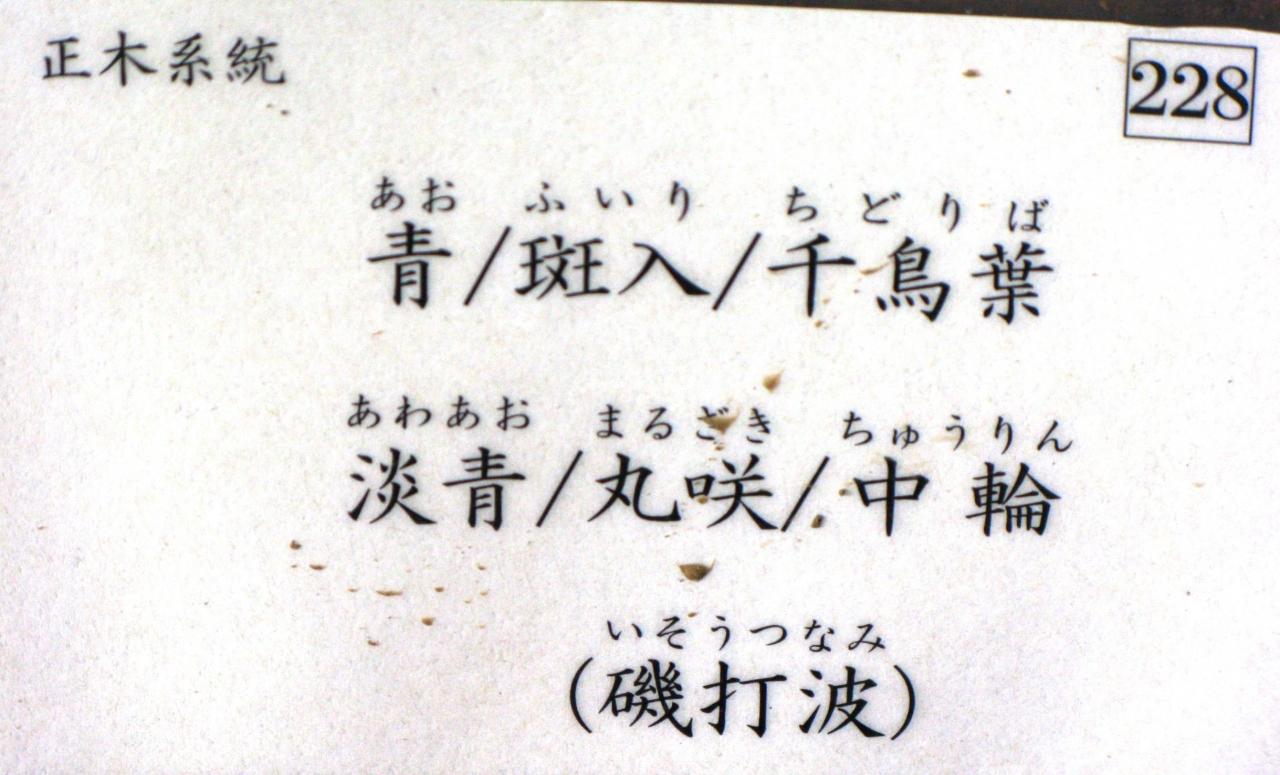 正木系統 228
あお ふいり ちどりば
青/斑入/千鳥葉
あわあお まるざき ちゅうりん
淡青/丸咲/中輪
いそうつなみ
(磯打波)